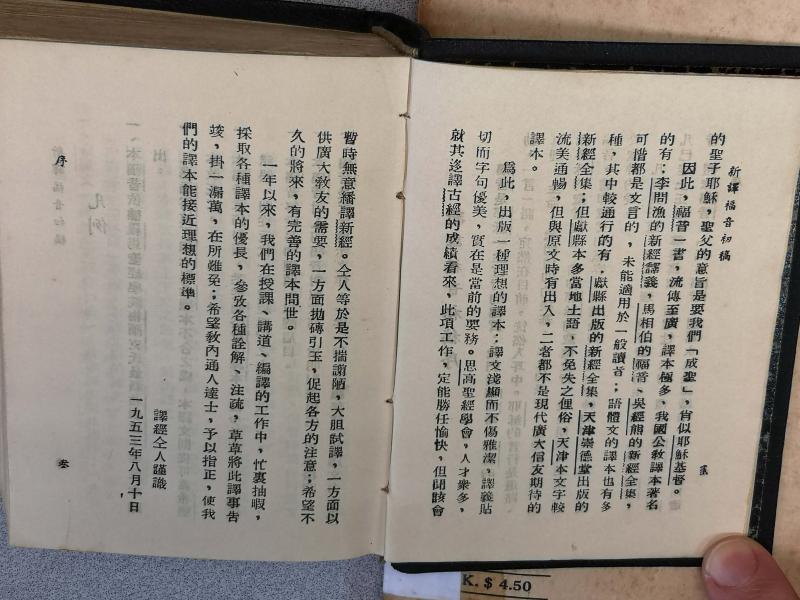 新譯福音初稿
貳
的聖子耶穌，聖父的意旨是要我們「成聖」，肖似耶穌基督。
因此，福音一書，流傳至廣，譯本極多、我國公教譯本著名
的有：李問漁的新經譯義，馬相伯的福音、吳經熊的新經全集，
可惜都是文言的，未能適用於一般讀者；語體文的譯本也有多
種，其中較通行的有：獻縣出版的新經全集，天津崇德堂出版的
新經全集；但獻縣本多當地土語，不免失之俚俗，天津本文字較
流美通暢，但與原文時有出入，二者都不是現代廣大信友期待的
譯本。
爲此，出版一種理想的譯本：譯文淺顯而不傷雅潔，譯義貼
切而字句優美，實在是當前的要務。思高聖經學會，人才衆多，
就其迻譯古經的成績看來，此項工作，定能勝任愉快，但聞該會
暫時無意繙譯新經。仝人等於是不揣謭陋，大胆試譯，一方面以
供廣大敎友的需要，一方面拋磚引玉，促起各方的注意；希望不
久的將來，有完善的譯本問世。
一年以來，我們在授課、講道、編譯的工作中，忙裏抽暇，
採取各種譯本的優長，參攷各種詮解、注疏，草草將此譯事告
竣，掛一漏萬，在所難免；希望敎內通人達士，予以指正，使我
們的譯本能接近理想的標準。
譯經仝人謹識
一九五三年八月十日
序
叁
凡例
K. $ 4.50